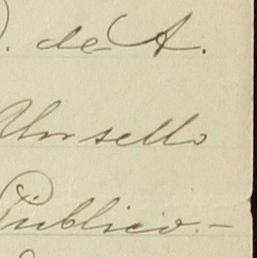 . de A.
Un sello
Publico.-